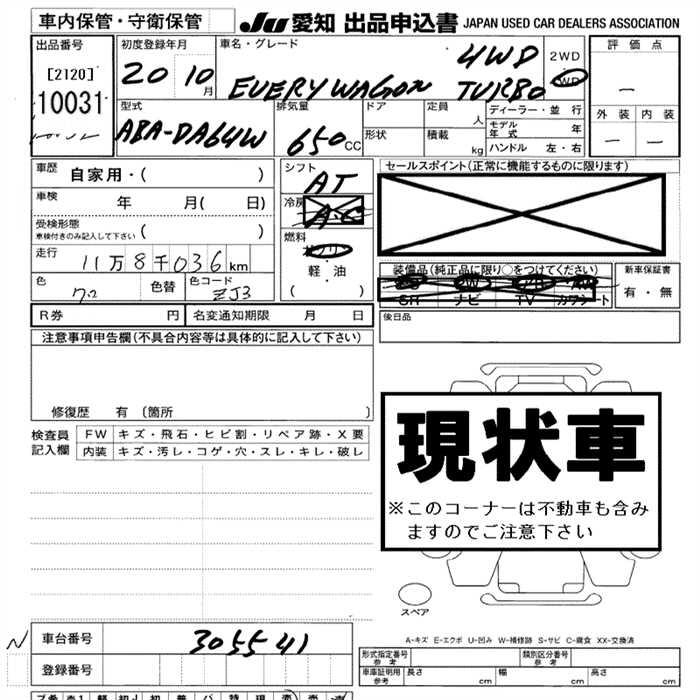 車内保管・守衛保管
JU 愛知 出品申込書 JAPAN USED CAR DEALERS ASSOCIATION
出品番号
[2120]
10031
初度登録年月
20 10月
車名・グレード
4WD
EVERY WAGON TURBO
2WD
・
4WD
評価点
―
外装 内装
― ―
型式
ABA-DA64W
排気量
650cc
ドア
形状
定員 人
積載 kg
ディーラー・並行
モデル年式 年
ハンドル 左・右
車歴 自家用・( )
車検 年 月( 日)
受検形態
車検付きのみ記入して下さい ( )
走行 11万8千036km
色 色替 色コード
ZJ3
シフト
AT
冷房
A・C
燃料
ガソリン
・
軽・油
( )
セールスポイント(正常に機能するものに限ります)
装備品(純正品に限り○をつけてください)
PS PW AW
SR ナビ TV カワシート
新車保証書
有・無
後日品
R券 円 名変通知期限 月 日
注意事項申告欄(不具合内容等は具体的に記入して下さい)
修復歴 有(箇所 )
検査員記入欄
FW キズ・飛石・ヒビ割・リペア跡・X要
内装 キズ・汚レ・コゲ・穴・スレ・キレ・破レ
現状車
※このコーナーは不動車も含み
ますのでご注意下さい
スペア
A-キズ E-エクボ U-凹み W-補修跡 S-サビ C-腐食 XX-交換済
N
車台番号 305541
登録番号
形式指定番号 参考
類別区分番号 参考
車庫証明用 参考 長さ cm 幅 cm 高さ cm